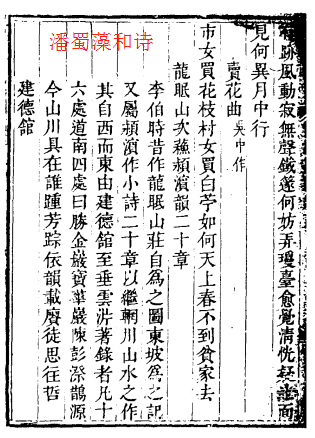 潘蜀藻和诗
跡風動寂無聲鐵篴何妨弄瓊臺愈覺清恍
見何異月中行
賣花曲 吳中作
市女買花枝村女買白苧如何天上春不到貧家去
龍眠山次蘇潁濱韻二十章
李伯時昔作龍眠山莊自為之圖東坡為之記
又屬潁濱作小詩二十章以繼輞川山水之作
其自西而東由建德館至垂雲沜著錄者凡十
六處道南四處曰勝金巖寶華巖陳彭漈鵲源
今山川具在誰踵芳踪依韻載賡徒思往哲
建德館